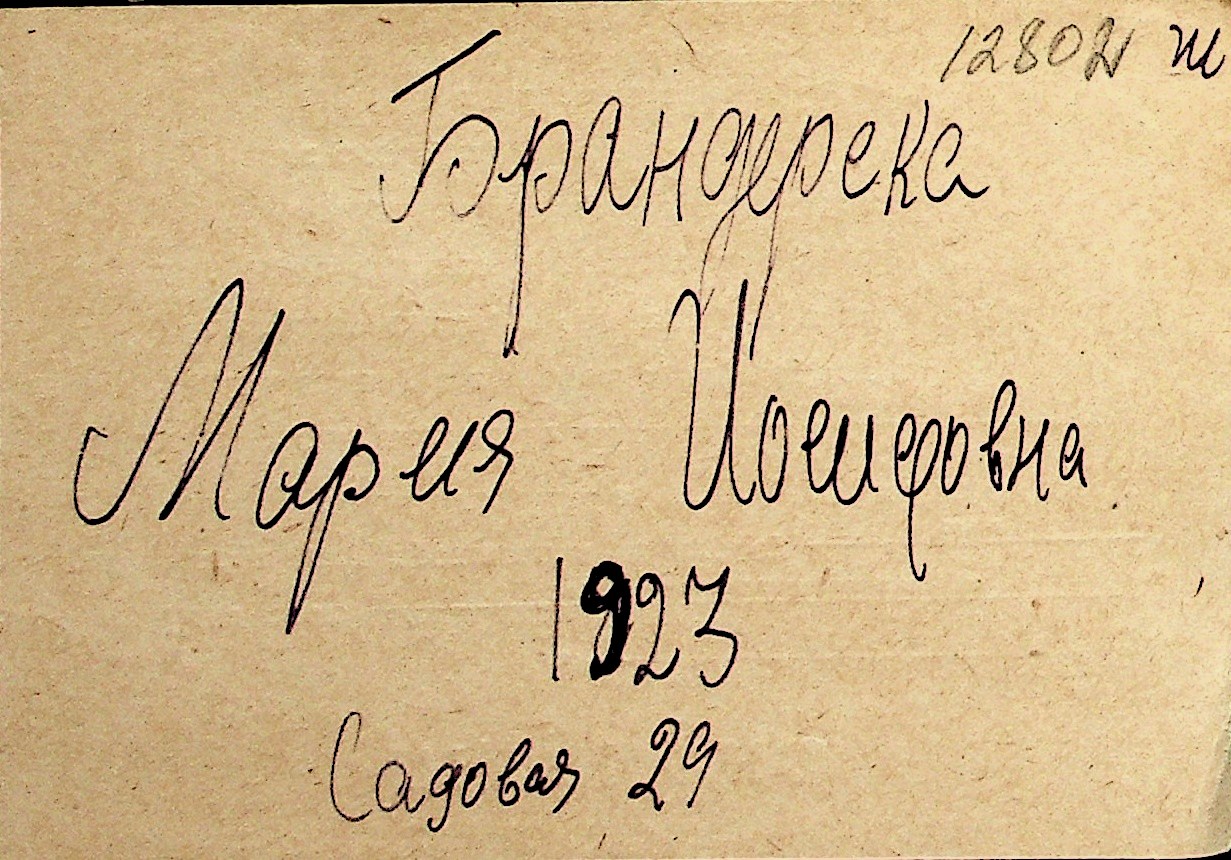 12802 ж
Брандерска
Мария Йосифовна
1923
Садовая 29